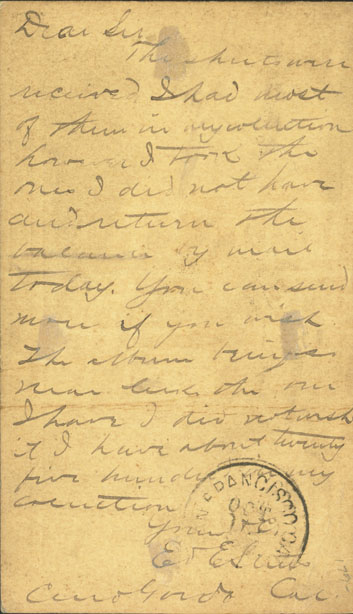 Dear Sir
The sheets were
received I had most
of them in my collection
however I took the
ones I did not have
and return the
balance by mail
today. You can send
more if you wish
The album being
near like the one
I have I did not wish
it I have about twenty
five hundred in my
collection
Yours
E
Cerro Gordo Cal
SAN FRANCISCO CAL
OCT